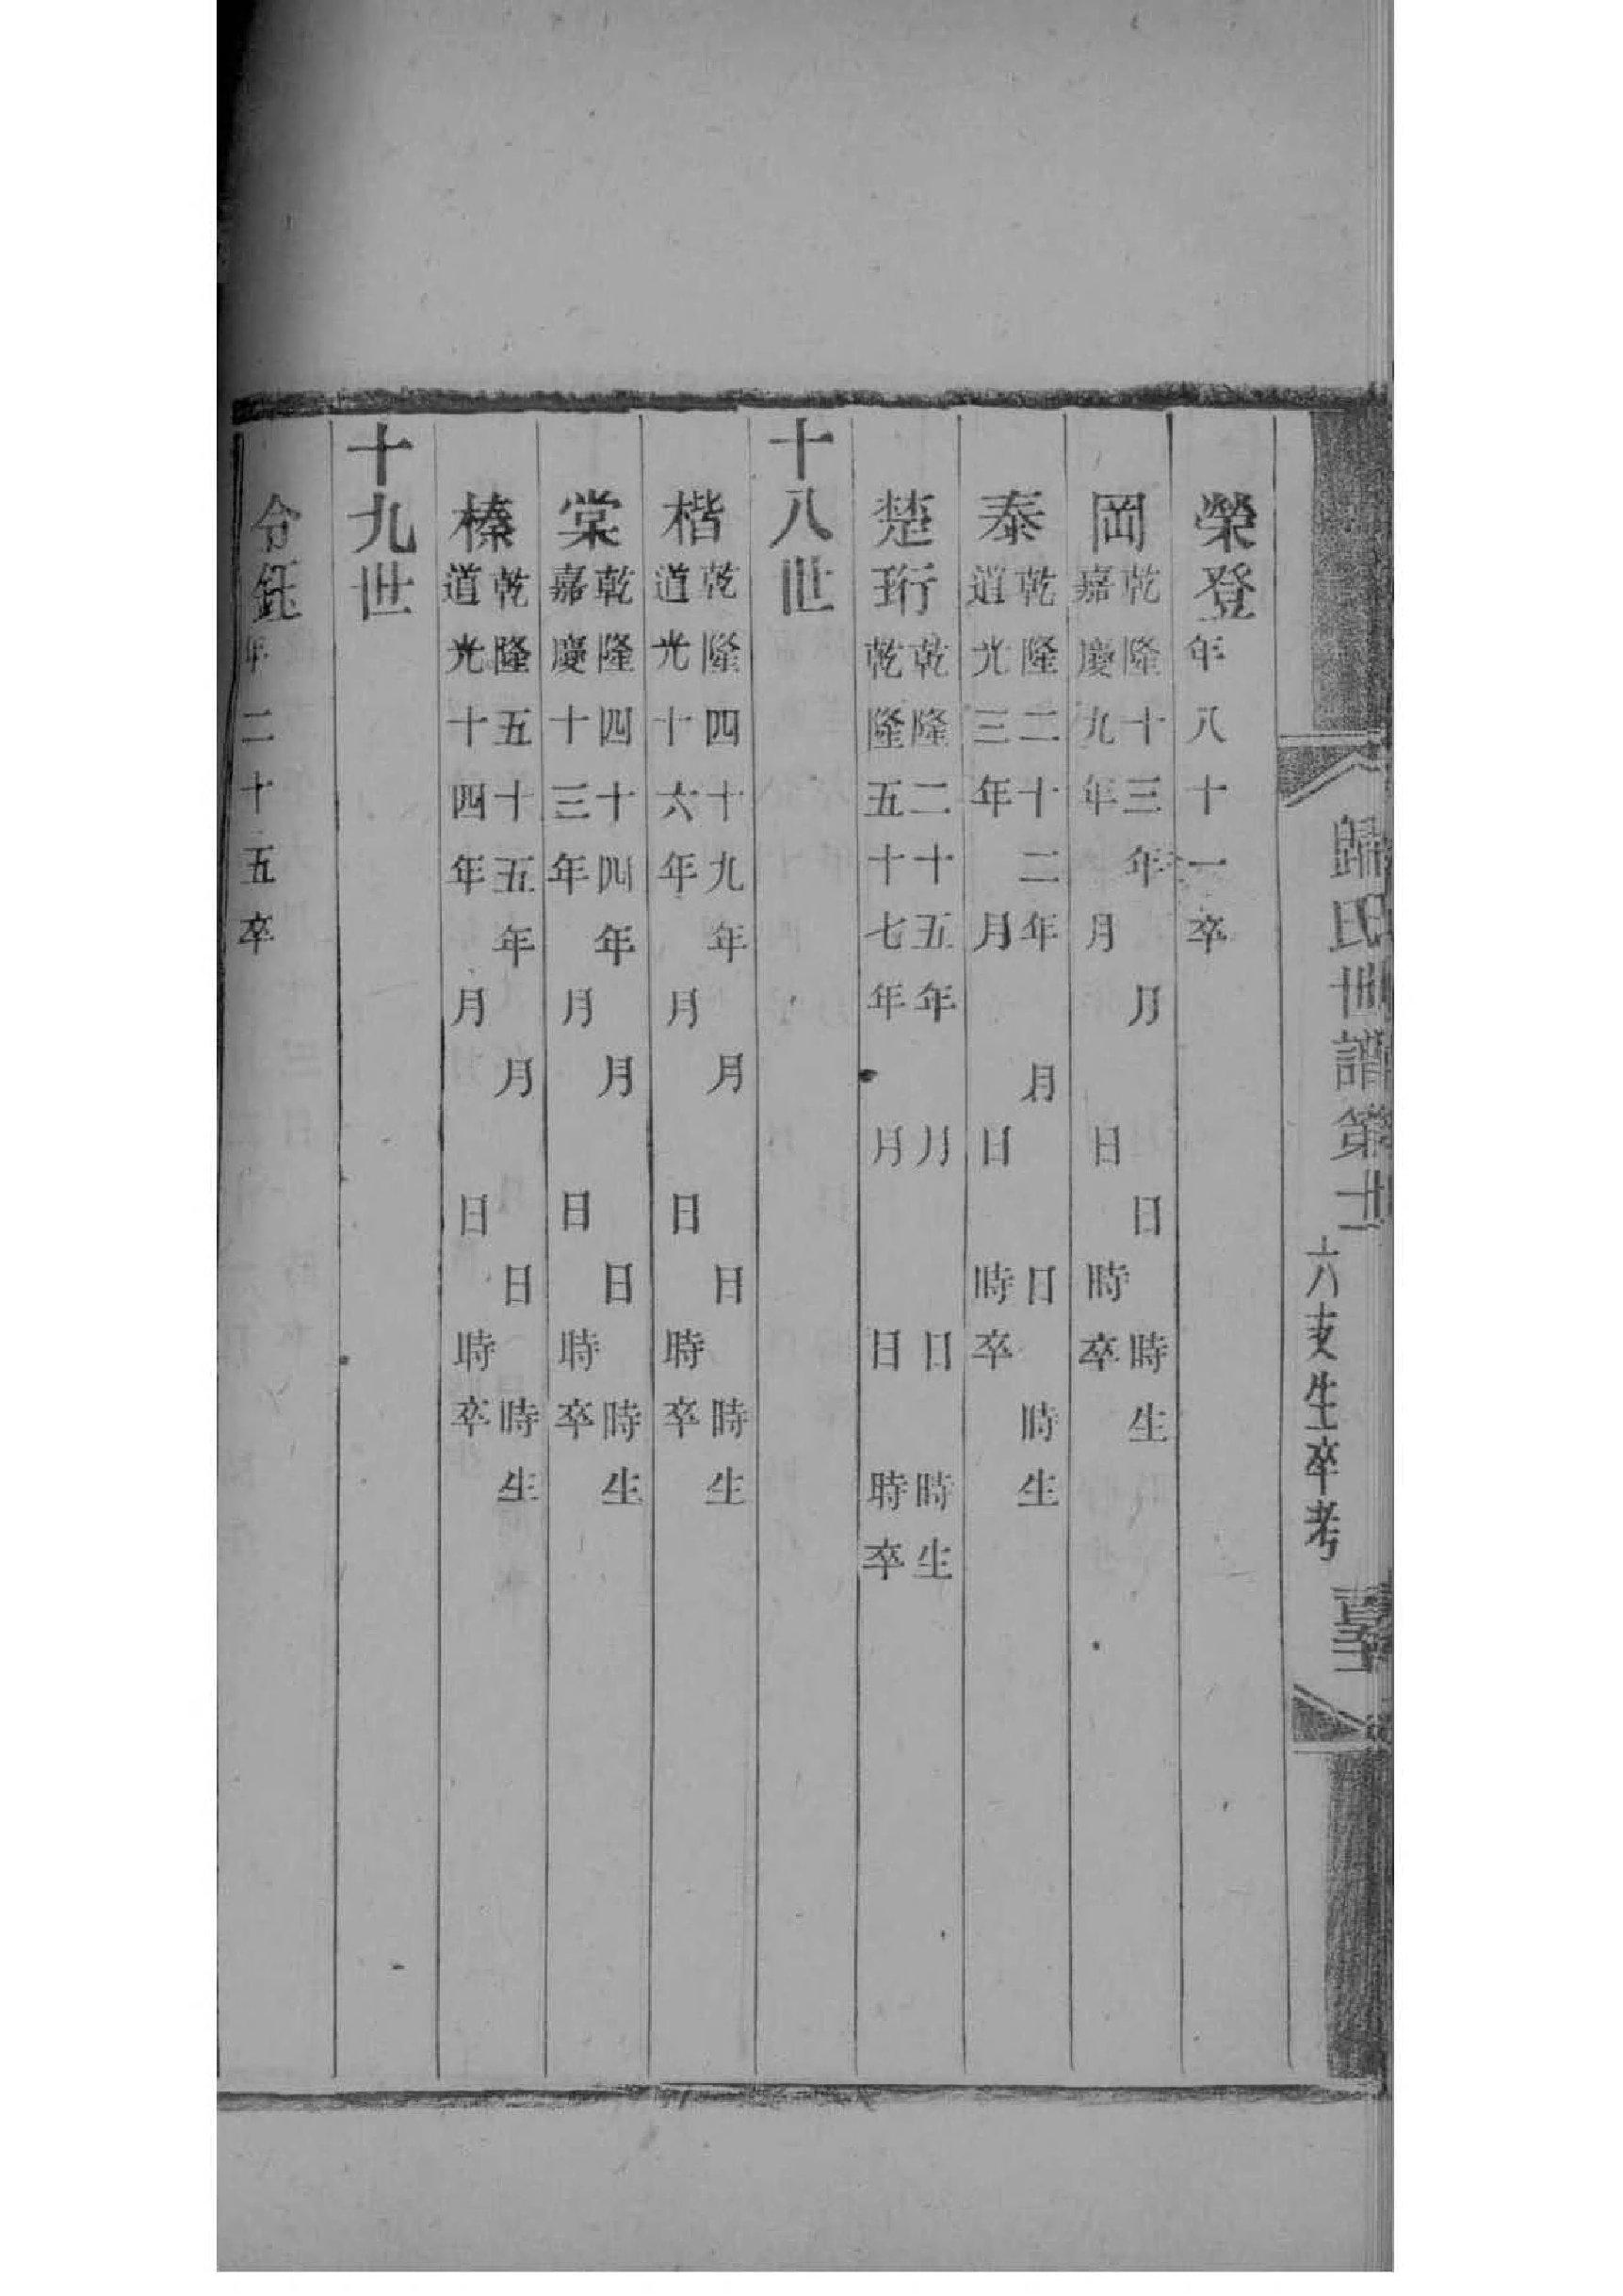 歸氏世譜第十
六支生卒考
榮登年八十一卒
岡乾隆十三年月日時生
嘉慶九年月日時卒
泰乾隆二十二年月日時生
道光三年月日時卒
楚珩乾隆二十五年月日時生
乾隆五十七年月日時卒
十八世
楷乾隆四十九年月日時生
道光十六年月日時卒
棠乾隆四十四年月日時生
嘉慶十三年月日時卒
榛乾隆五十五年月日時生
道光十四年月日時卒
十九世
令鈺年二十五卒